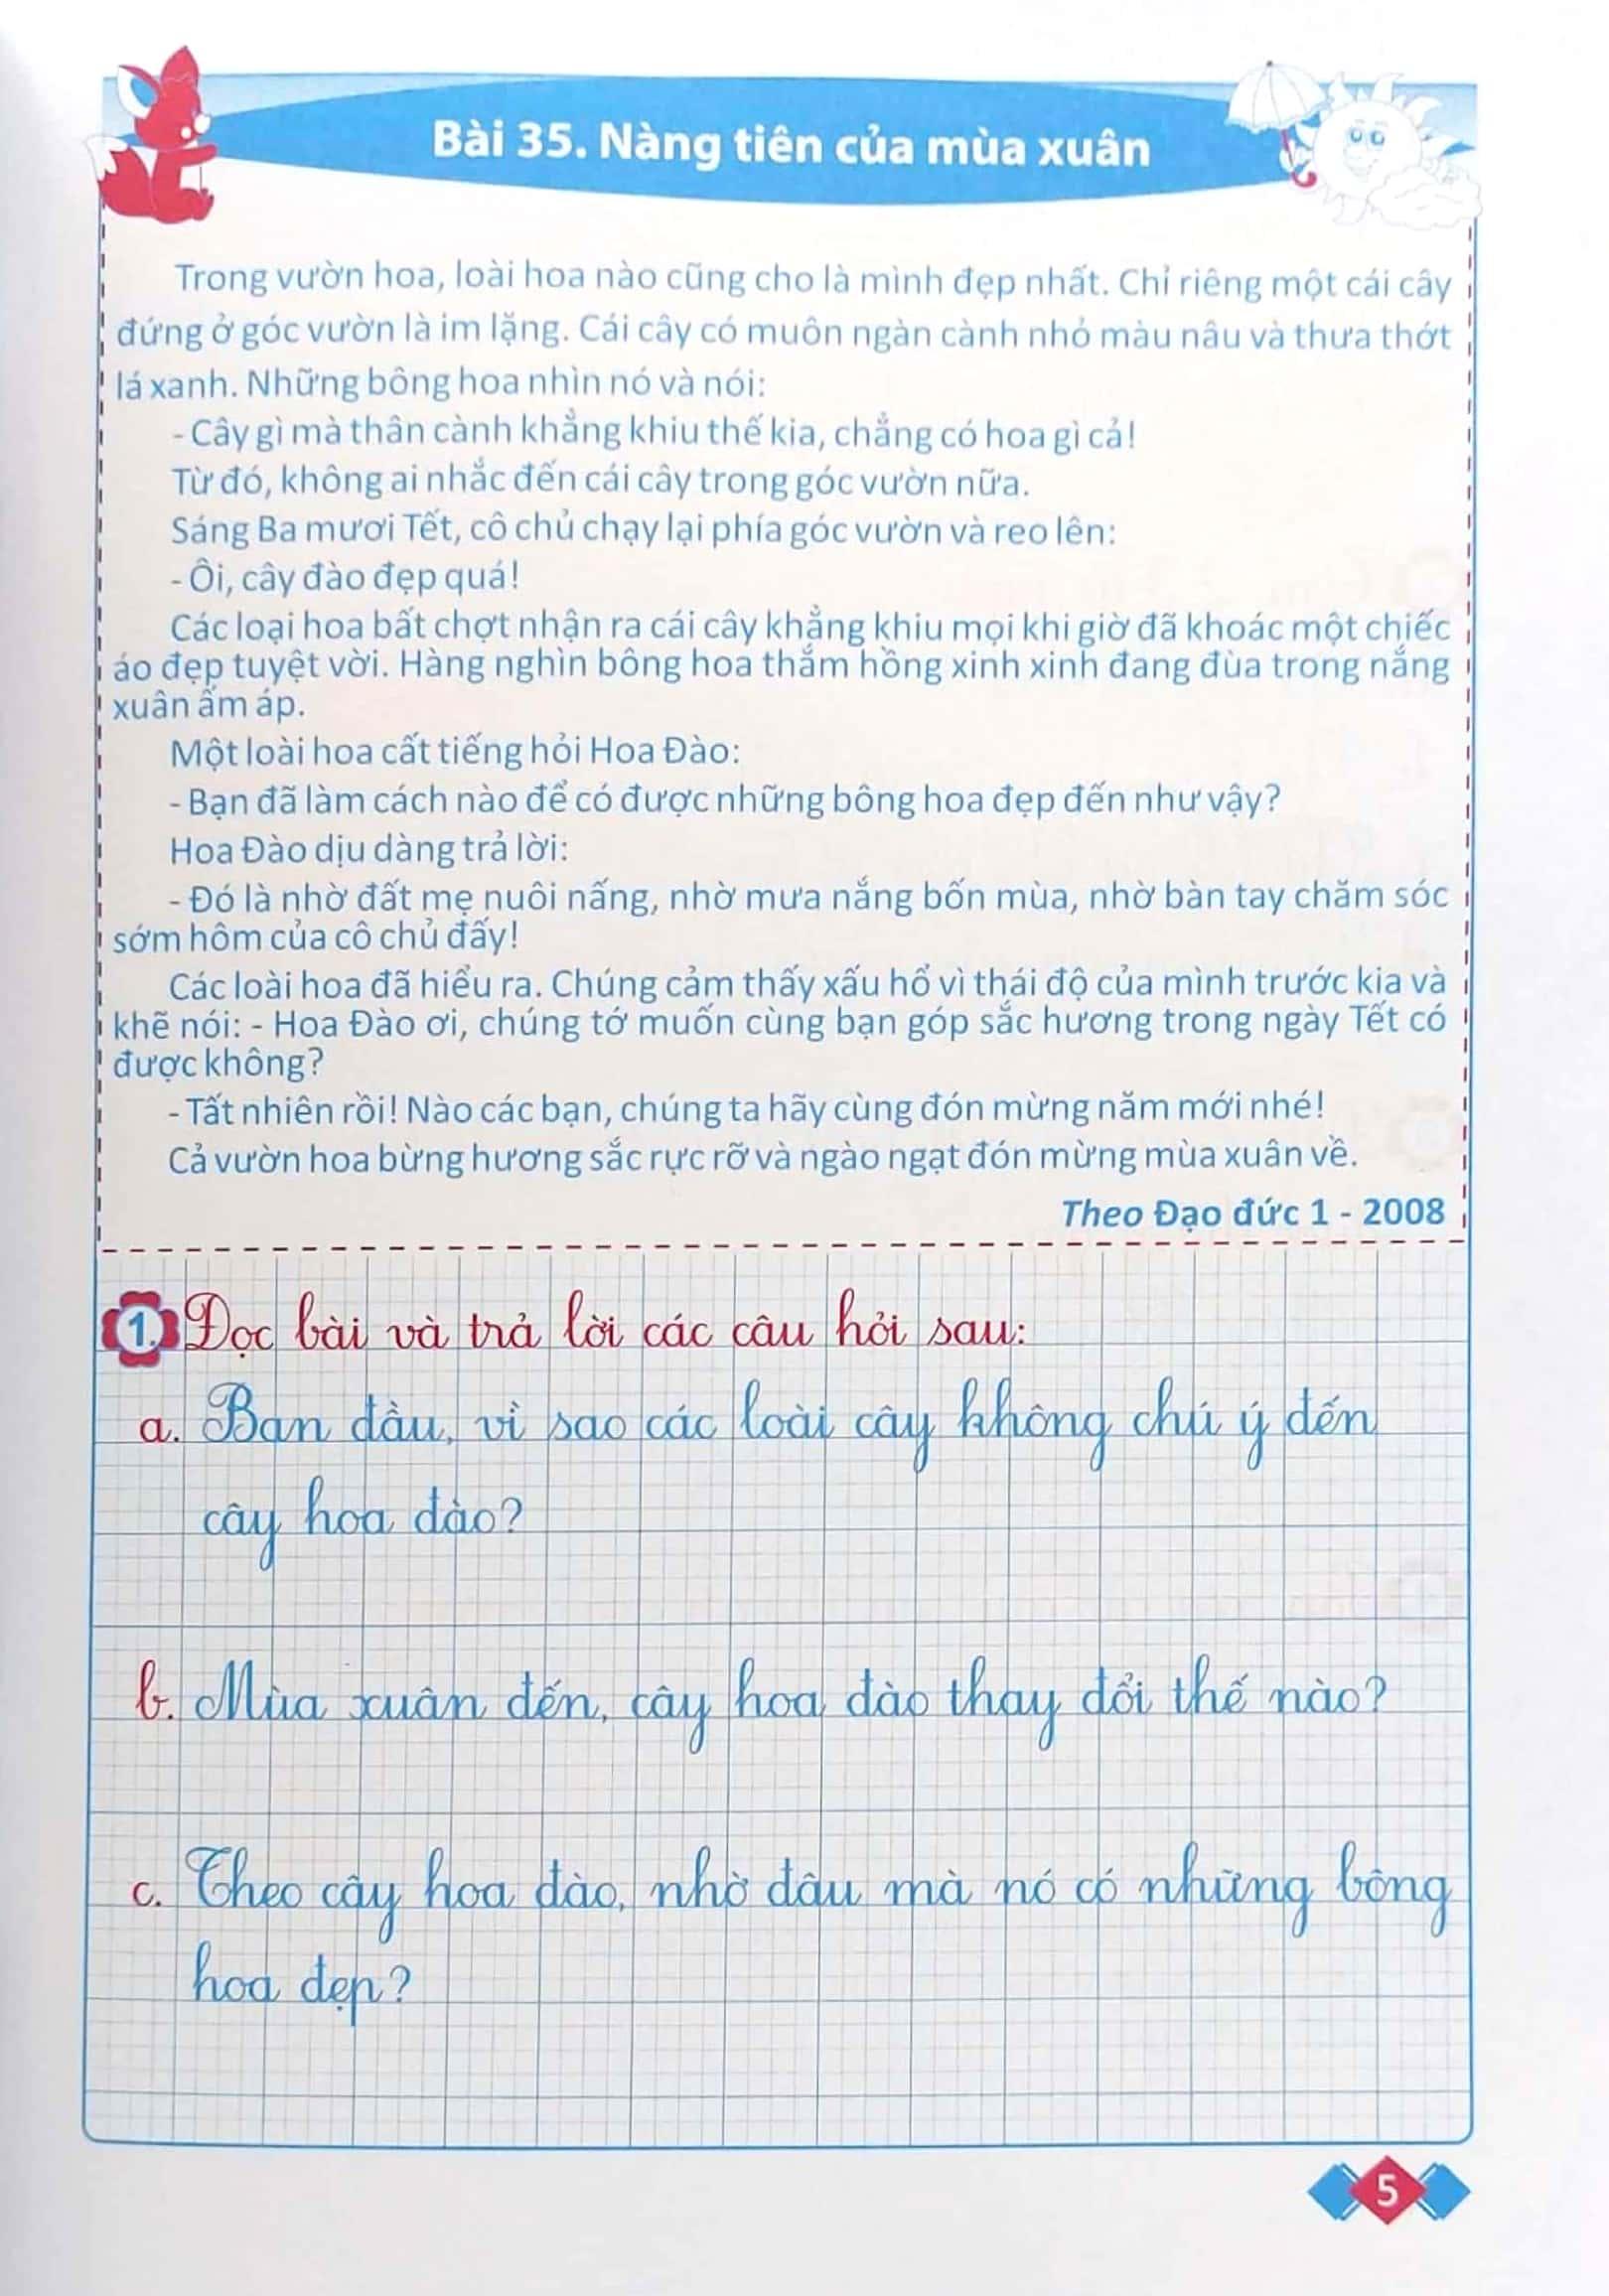 Bài 35. Nàng tiên của mùa xuân
Trong vườn hoa, loài hoa nào cũng cho là mình đẹp nhất. Chỉ riêng một cái cây
đứng ở góc vườn là im lặng. Cái cây có muôn ngàn cành nhỏ màu nâu và thưa thớt
lá xanh. Những bông hoa nhìn nó và nói:
- Cây gì mà thân cành khẳng khiu thế kia, chẳng có hoa gì cả!
Từ đó, không ai nhắc đến cái cây trong góc vườn nữa.
Sáng Ba mươi Tết, cô chủ chạy lại phía góc vườn và reo lên:
- Ôi, cây đào đẹp quá!
Các loại hoa bất chợt nhận ra cái cây khẳng khiu mọi khi giờ đã khoác một chiếc
áo đẹp tuyệt vời. Hàng nghìn bông hoa thắm hồng xinh xinh đang đùa trong nắng
xuân ấm áp.
Một loài hoa cất tiếng hỏi Hoa Đào:
- Bạn đã làm cách nào để có được những bông hoa đẹp đến như vậy?
Hoa Đào dịu dàng trả lời:
- Đó là nhờ đất mẹ nuôi nấng, nhờ mưa nắng bốn mùa, nhờ bàn tay chăm sóc
sớm hôm của cô chủ đấy!
Các loài hoa đã hiểu ra. Chúng cảm thấy xấu hổ vì thái độ của mình trước kia và
khẽ nói: - Hoa Đào ơi, chúng tớ muốn cùng bạn góp sắc hương trong ngày Tết có
được không?
- Tất nhiên rồi! Nào các bạn, chúng ta hãy cùng đón mừng năm mới nhé!
Cả vườn hoa bừng hương sắc rực rỡ và ngào ngạt đón mừng mùa xuân về.
Theo Đạo đức 1 - 2008
1. Đọc bài và trả lời các câu hỏi sau:
a. Ban đầu, vì sao các loài cây không chú ý đến
cây hoa đào?
b. Mùa xuân đến, cây hoa đào thay đổi thế nào?
c. Theo cây hoa đào, nhờ đâu mà nó có những bông
hoa đẹp?
5